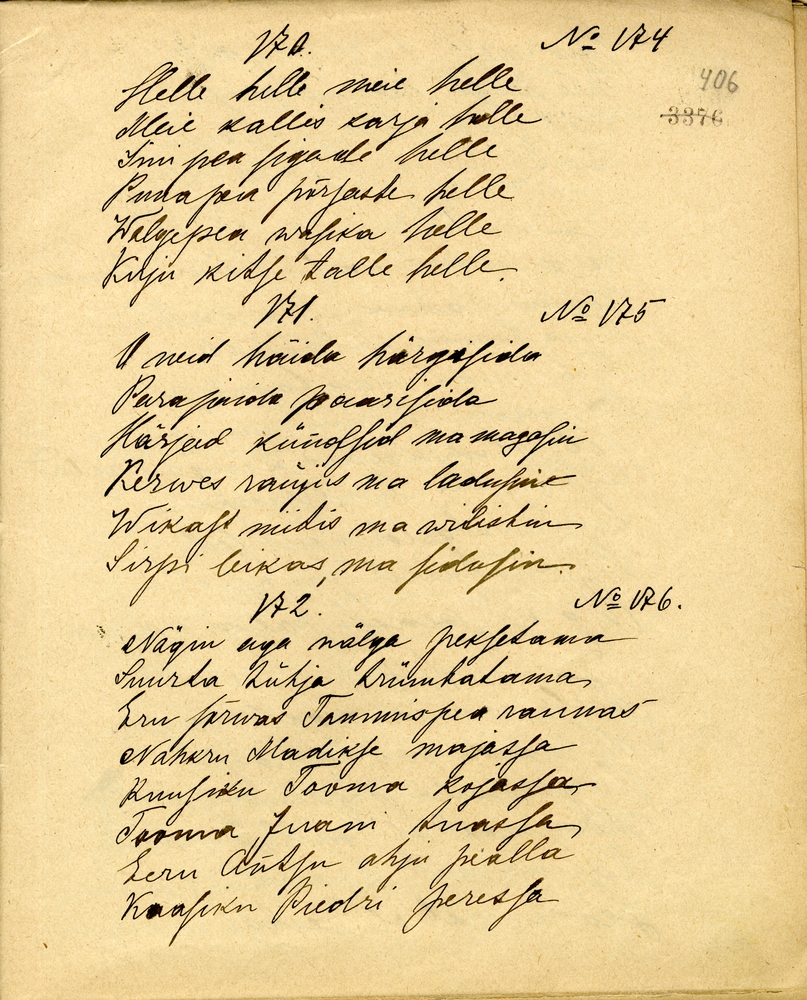 170. № 174
406
3376
Helle helle meie helle
Meie kallis karja helle
Imi pea sigade helle
Punapea põrsaste helle
Walgepea wasika helle
Kirju kitse talle helle.
171. № 175
O neid häida härgasida
Parajaida paarisida
Härjad kündsid ma magasin
Kerwes raijus ma ladusin
Wikast niitis ma wilistin
Sirpi leikas, ma sidusin.
172. № 176.
Nägin aga nälga peksetama
Suurta tühja trümbatama
Eru järwas Tammispea rannas
Nahkru Madikse majassa
Kuusiku Tooma kojassa
Tooma Juani tuassa
Eeru Antsu ahju pealla
Kaasiku Piedri peressa